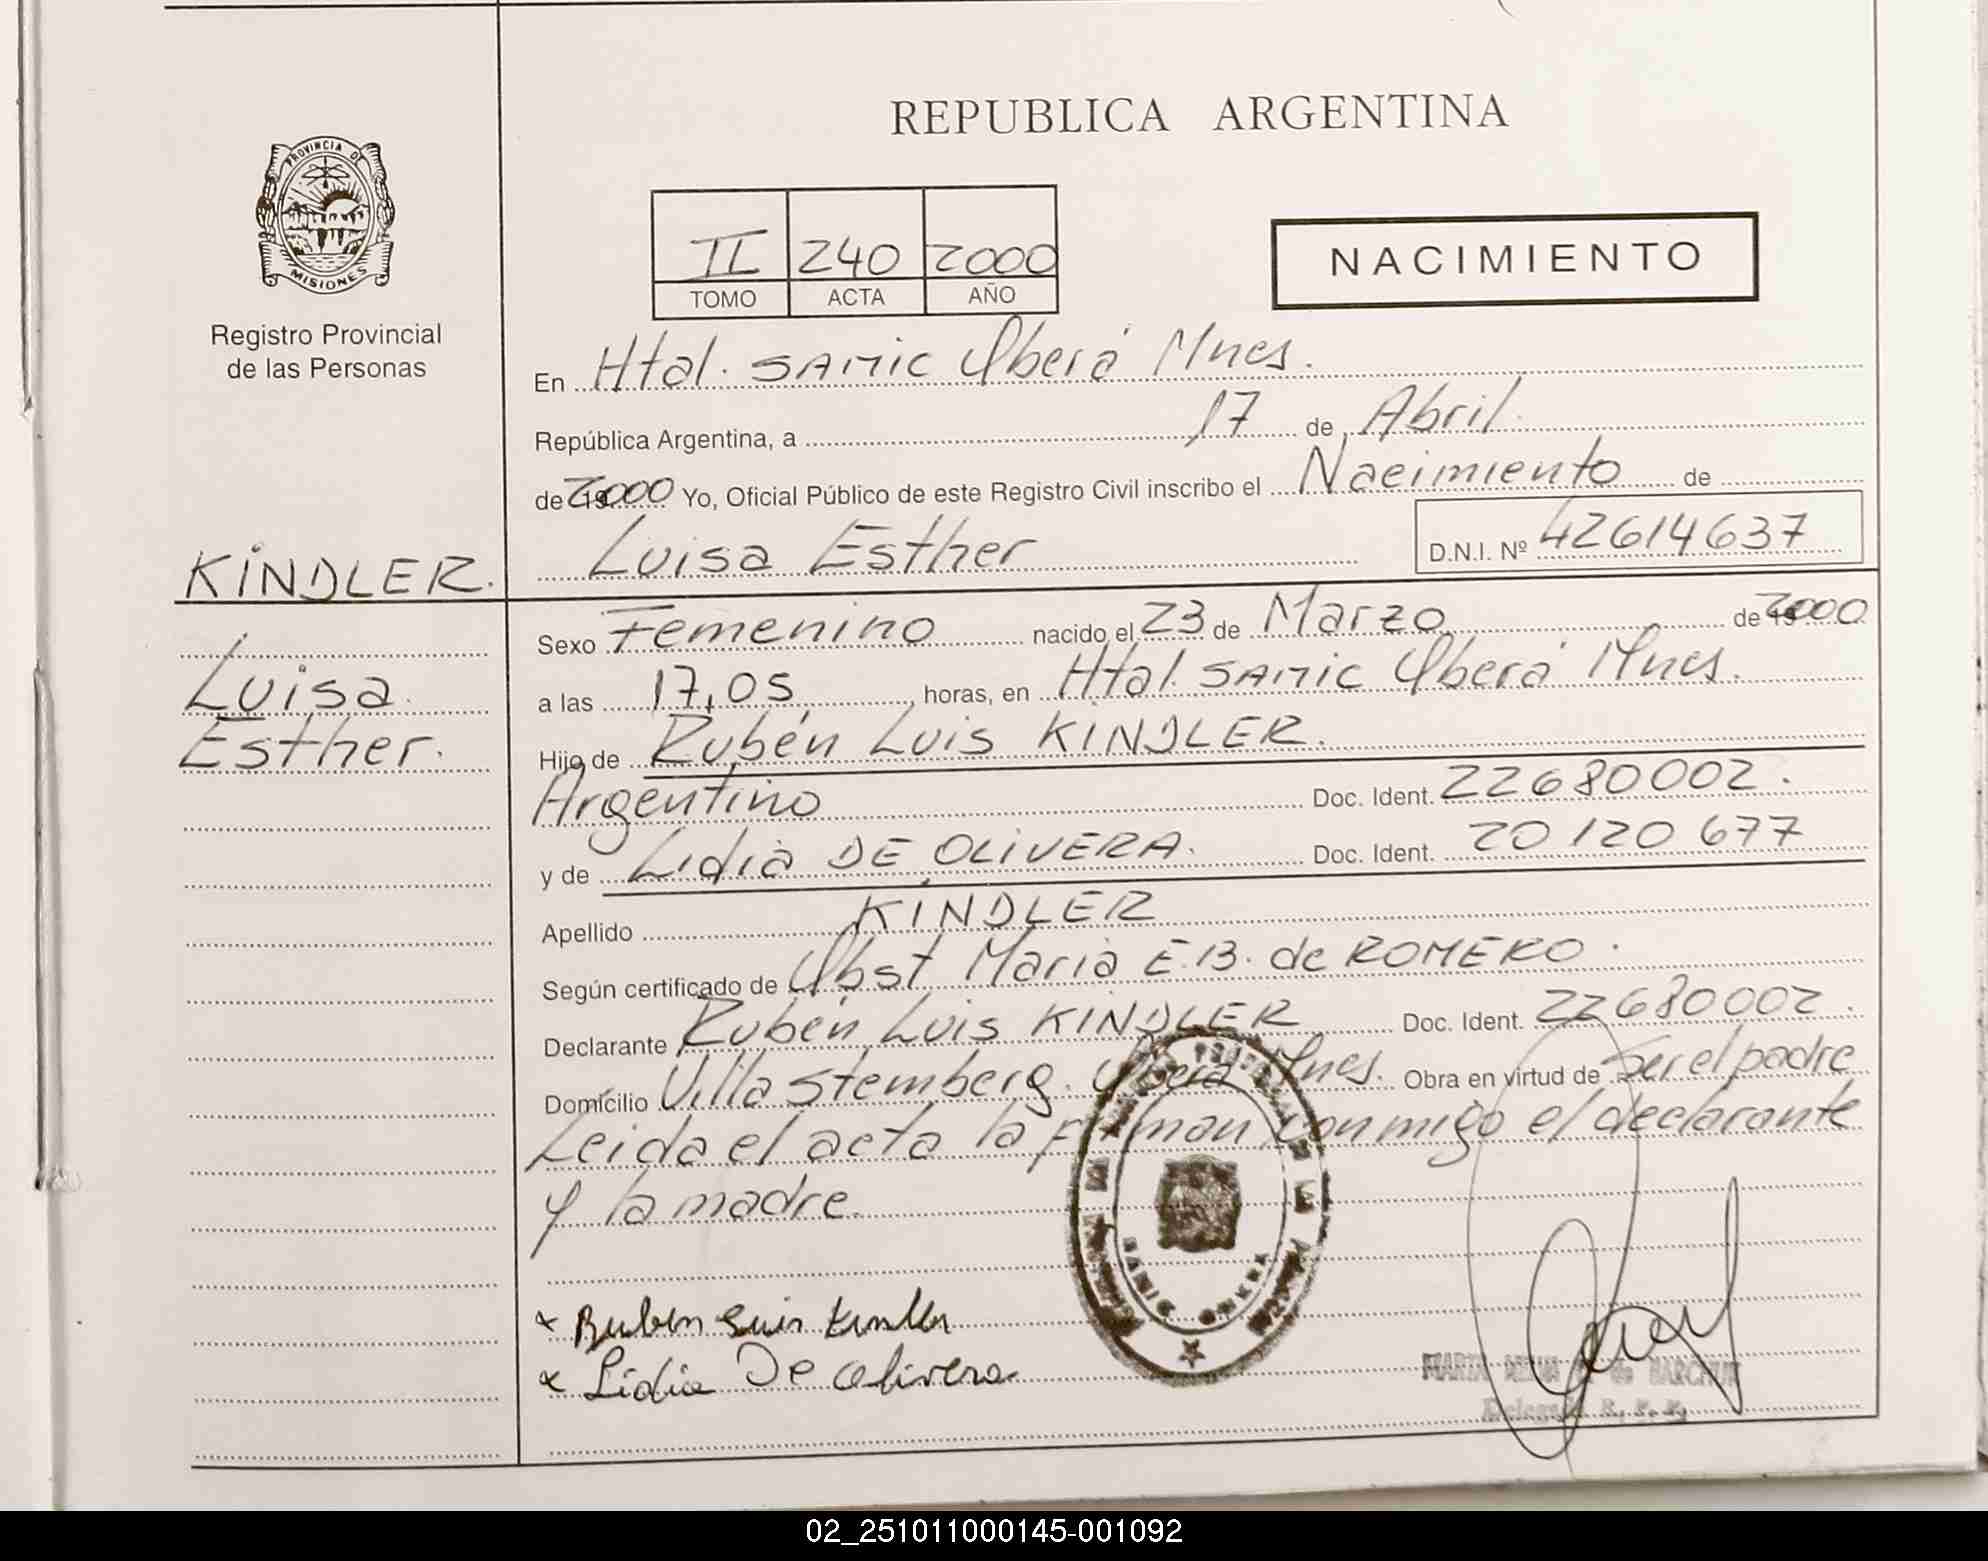 REPUBLICA ARGENTINA
PROVINCIA DE
MISIONES
Registro Provincial
de las Personas
II 240 2000
TOMO ACTA AÑO
NACIMIENTO
En Htal. SAMIC Oberá Mnes.
República Argentina, a 17 de Abril.
de 2000 Yo, Oficial Público de este Registro Civil inscribo el Nacimiento de
KINDLER. Luisa Esther D.N.I. Nº 42614637
Sexo Femenino nacido el 23 de Marzo de 2000
Luisa a las 17,05 horas, en Htal. SAMIC Oberá Mnes.
Esther. Hijo de Rubén Luis KINDLER.
Argentino Doc. Ident. 22680002.
y de Lidia DE OLIVERA. Doc. Ident. 20 120 677
Apellido KINDLER
Según certificado de Obst Maria E.B. de ROMERO.
Declarante Rubén Luis KINDLER Doc. Ident. 22680002.
Domicilio Villa Stemberg. Oberá Mnes. Obra en virtud de Ser el padre
Leida el acta la firman conmigo el declarante
y la madre.
x Ruben Luis Kindler
x Lidia De Olivera
MARTA de MARCHUK
Delegada R. P. P.
02_251011000145-001092